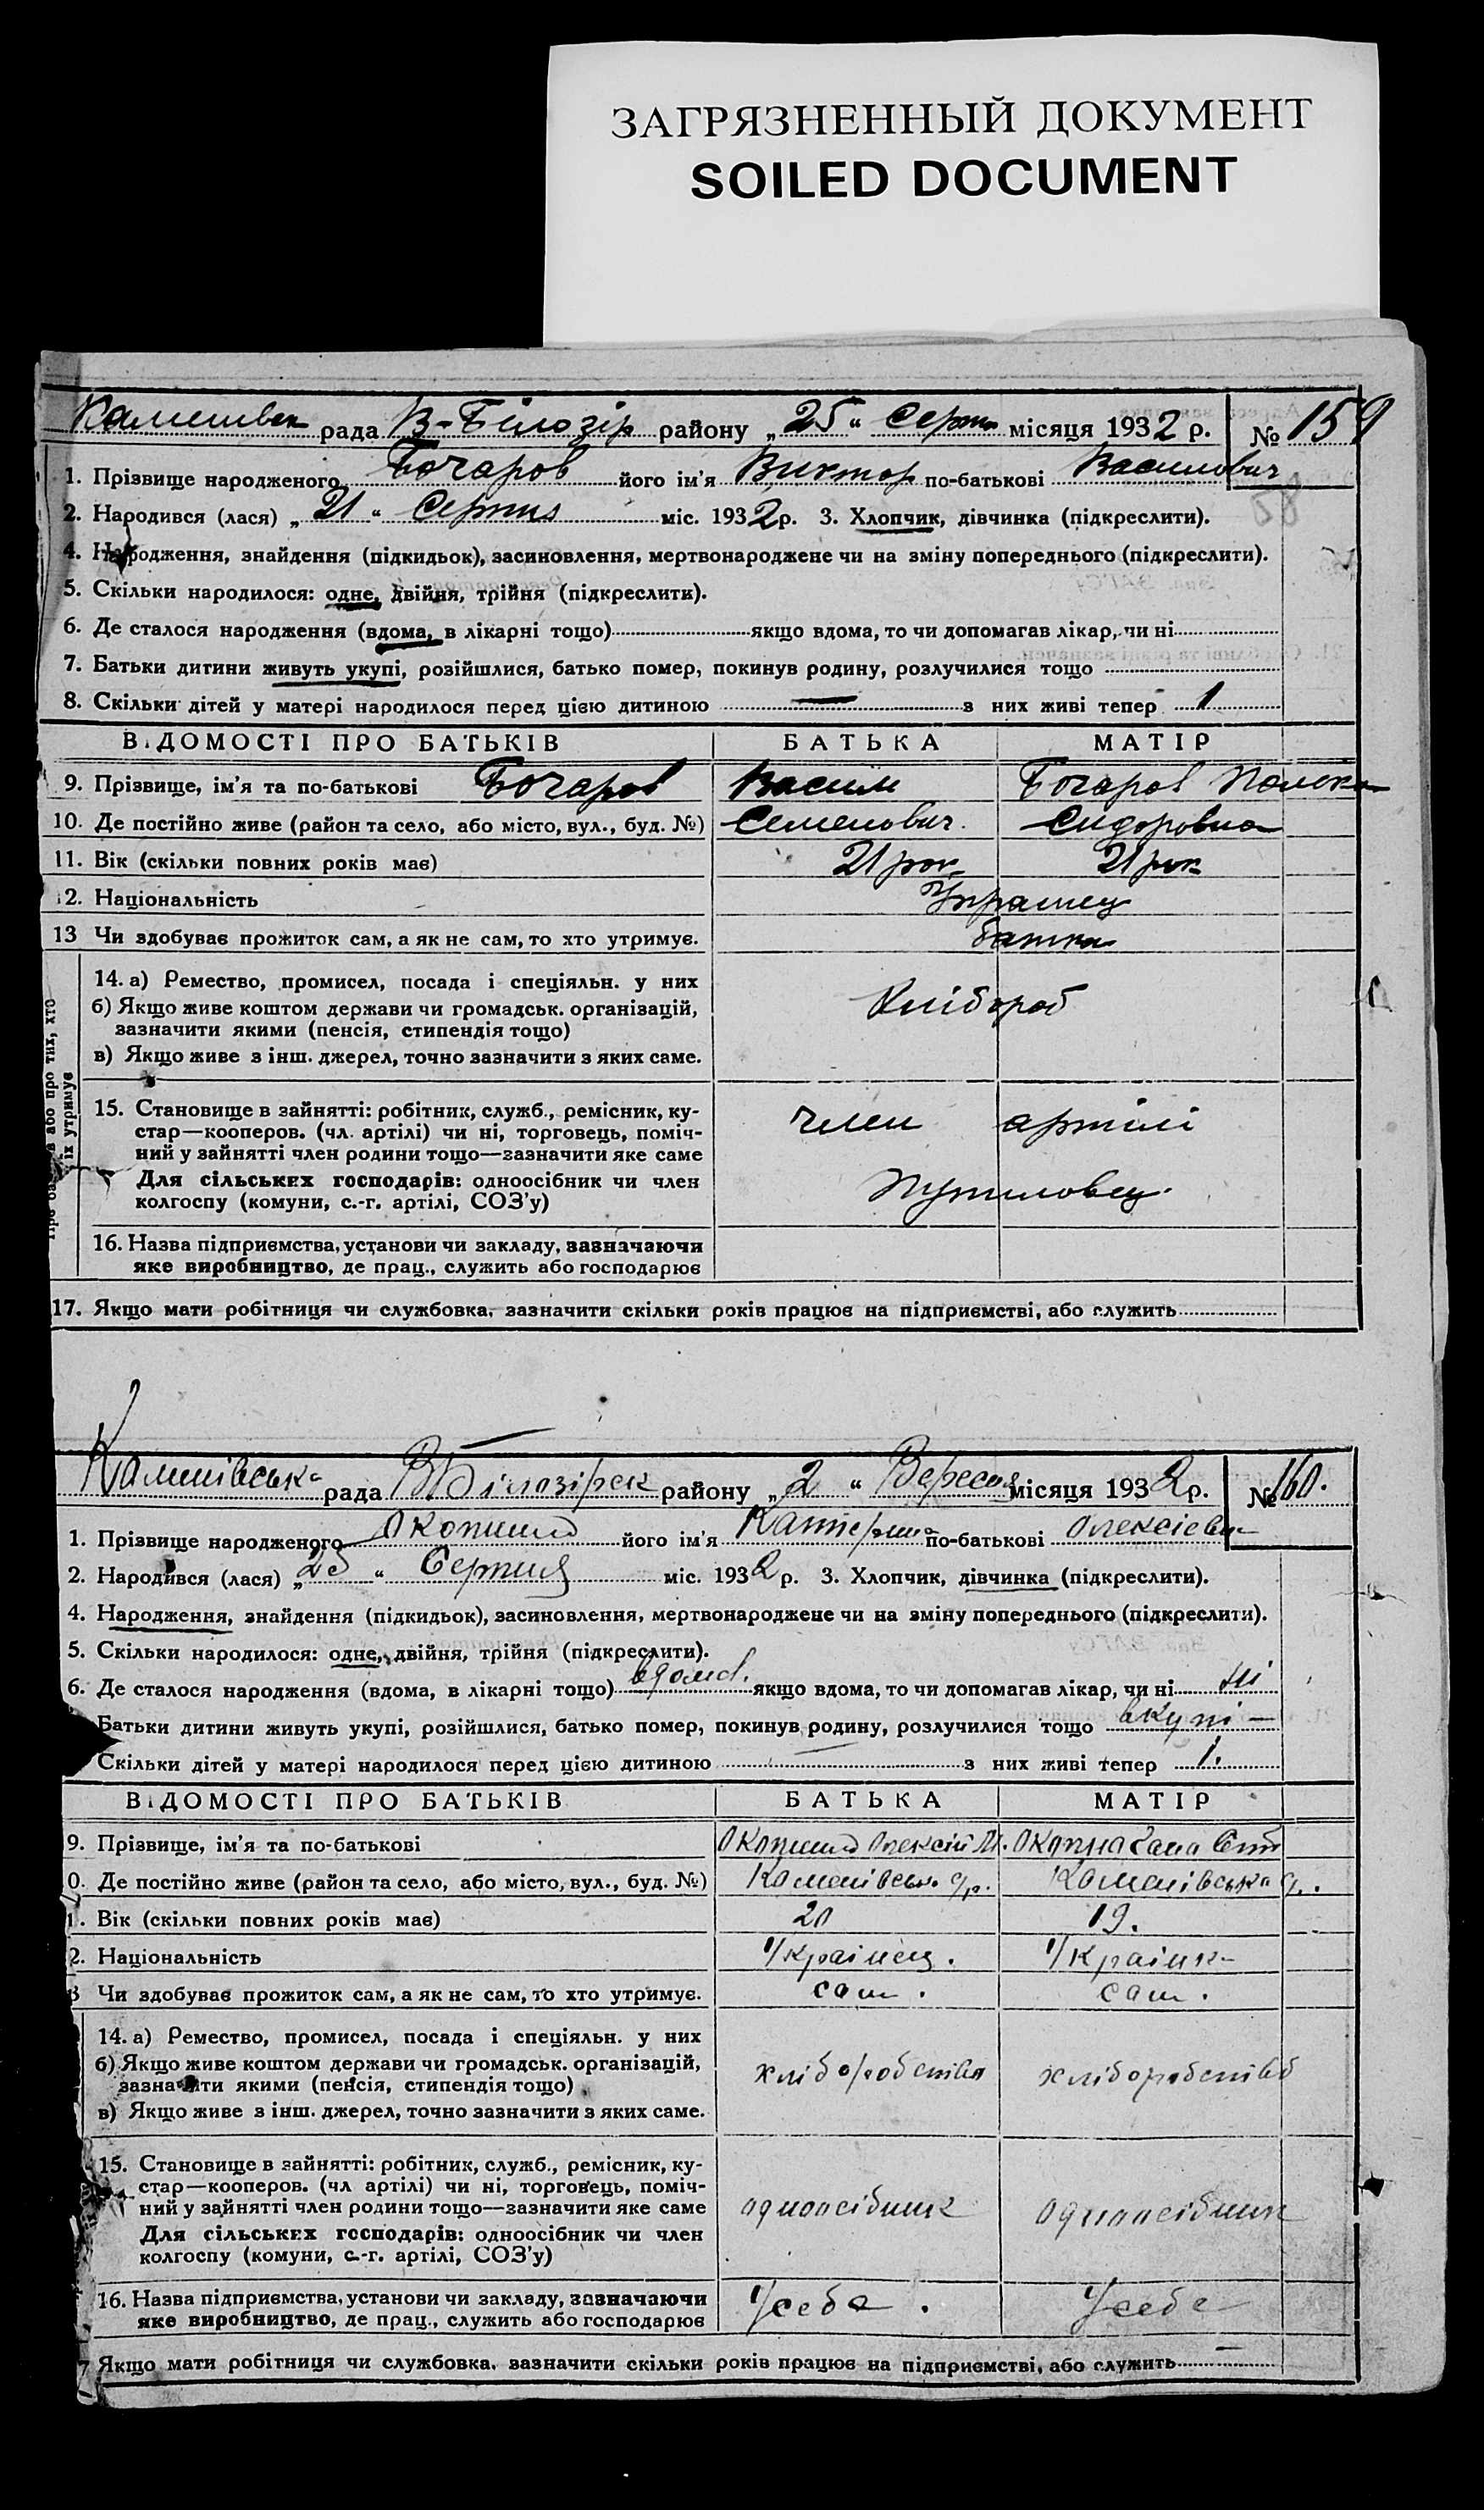 ЗАГРЯЗНЕННЫЙ ДОКУМЕНТ
SOILED DOCUMENT
рада В-Білозір району „25“ Серпн місяця 1932 р. № 159
1. Прізвище народженого Бочаров його ім'я Виктор по-батькові Василович
2. Народився (лася) „21“ Серпня міс. 1932 р. 3. Хлопчик, дівчинка (підкреслити).
4. Народження, знайдення (підкидьок), засиновлення, мертвонароджене чи на зміну попереднього (підкреслити).
5. Скільки народилося: одне, двійня, трійня (підкреслити).
6. Де сталося народження (вдома, в лікарні тощо) якщо вдома, то чи допомагав лікар, чи ні
7. Батьки дитини живуть укупі, розійшлися, батько помер, покинув родину, розлучилися тощо
8. Скільки дітей у матері народилося перед цією дитиною — з них живі тепер 1
ВІДОМОСТІ ПРО БАТЬКІВ БАТЬКА МАТІР
9. Прізвище, ім'я та по-батькові Бочаров Василь Бочаров
10. Де постійно живе (район та село, або місто, вул., буд. №) Семенович Сидоровна
11. Вік (скільки повних років має) 21 рок 21 рок
12. Національність Украинец
13 Чи здобуває прожиток сам, а як не сам, то хто утримує. батьки
14. а) Ремество, промисел, посада і спеціяльн. у них
б) Якщо живе коштом держави чи громадськ. організацій,
зазначити якими (пенсія, стипендія тощо)
в) Якщо живе з інш. джерел, точно зазначити з яких саме.
Хлібороб
в або про тих, хто
їх утримує
15. Становище в зайнятті: робітник, служб., ремісник, ку-
стар—кооперов. (чл. артілі) чи ні, торговець, поміч-
ний у зайнятті член родини тощо—зазначити яке саме
Для сільських господарів: одноосібник чи член
колгоспу (комуни, с.-г. артілі, СОЗ'у)
член артілі
Путиловец
16. Назва підприємства, установи чи закладу, зазначаючи
яке виробництво, де прац., служить або господарює
17. Якщо мати робітниця чи службовка, зазначити скільки років працює на підприємстві, або служить
рада ВБілозірськ району „2“ Вересня місяця 1932 р. № 160.
1. Прізвище народженого його ім'я Катерина по-батькові Олексієвн
2. Народився (лася) „25“ Серпня міс. 1932 р. 3. Хлопчик, дівчинка (підкреслити).
4. Народження, знайдення (підкидьок), засиновлення, мертвонароджене чи на зміну попереднього (підкреслити).
5. Скільки народилося: одне, двійня, трійня (підкреслити).
6. Де сталося народження (вдома, в лікарні тощо) вдома. якщо вдома, то чи допомагав лікар, чи ні ні
Батьки дитини живуть укупі, розійшлися, батько помер, покинув родину, розлучилися тощо вкупі —
Скільки дітей у матері народилося перед цією дитиною — з них живі тепер 1.
ВІДОМОСТІ ПРО БАТЬКІВ БАТЬКА МАТІР
9. Прізвище, ім'я та по-батькові Олексій
0. Де постійно живе (район та село, або місто, вул., буд. №)
1. Вік (скільки повних років має) 20 19.
2. Національність Українец. Українк
3 Чи здобуває прожиток сам, а як не сам, то хто утримує. сам. сам.
14. а) Ремество, промисел, посада і спеціяльн. у них
б) Якщо живе коштом держави чи громадськ. організацій,
зазначити якими (пенсія, стипендія тощо)
в) Якщо живе з інш. джерел, точно зазначити з яких саме.
хліборобство хліборобство
15. Становище в зайнятті: робітник, служб., ремісник, ку-
стар—кооперов. (чл артілі) чи ні, торговець, поміч-
ний у зайнятті член родини тощо—зазначити яке саме
Для сільських господарів: одноосібник чи член
колгоспу (комуни, с.-г. артілі, СОЗ'у)
одноосібник одноосібник
16. Назва підприємства, установи чи закладу, зазначаючи
яке виробництво, де прац., служить або господарює
У себе. У себе
7 Якщо мати робітниця чи службовка, зазначити скільки років працює на підприємстві, або служить —